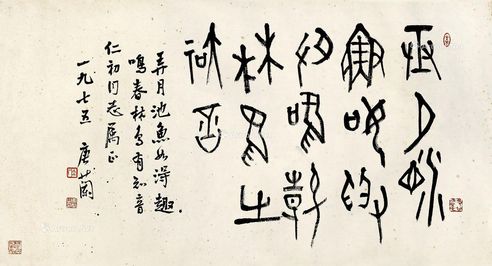 弄月池
魚如得
趣鳴春
林鳥有
知音
弄月池魚如得趣
鳴春林鳥有知音
仁初同志属正
一九七五 唐蘭